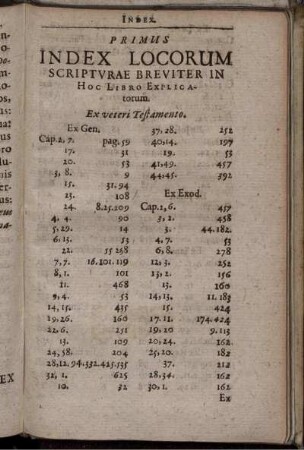 INDEX.
PRIMUS
INDEX LOCORUM
SCRIPTVRAE BREVITER IN
HOC LIBRO EXPLICA-
torum.
Ex veteri Testamento.
Ex Gen.
Cap. 2, 7. pag. 59
17. 31
20. 53
3, 8. 9
15. 31. 94
23. 108
24. 8. 25. 209
4, 4. 90
5, 29. 14
6. 13. 53
22. 55 258
7, 7. 16. 101. 119
8, 1. 101
21. 468
9, 4. 53
14, 15. 435
19, 26. 160
22, 6. 251
13. 109
24, 58. 204
28, 12. 94. 332. 425. 535
32, 1. 625
10. 32
37, 28. 252
40, 14. 197
19. 53
41, 49. 457
44, 45. 392
Ex Exod.
Cap. 2, 6. 457
3, 2. 458
3. 44. 182.
4, 7. 53
6, 8. 278
12, 3. 252
13, 2. 156
13. 160
14, 13. 11. 183
15. 424
17. 11. 174. 424
19, 10 9. 113
20, 24. 162
25, 10. 182
28, 34. 162
30, 1. 162
Ex
EX